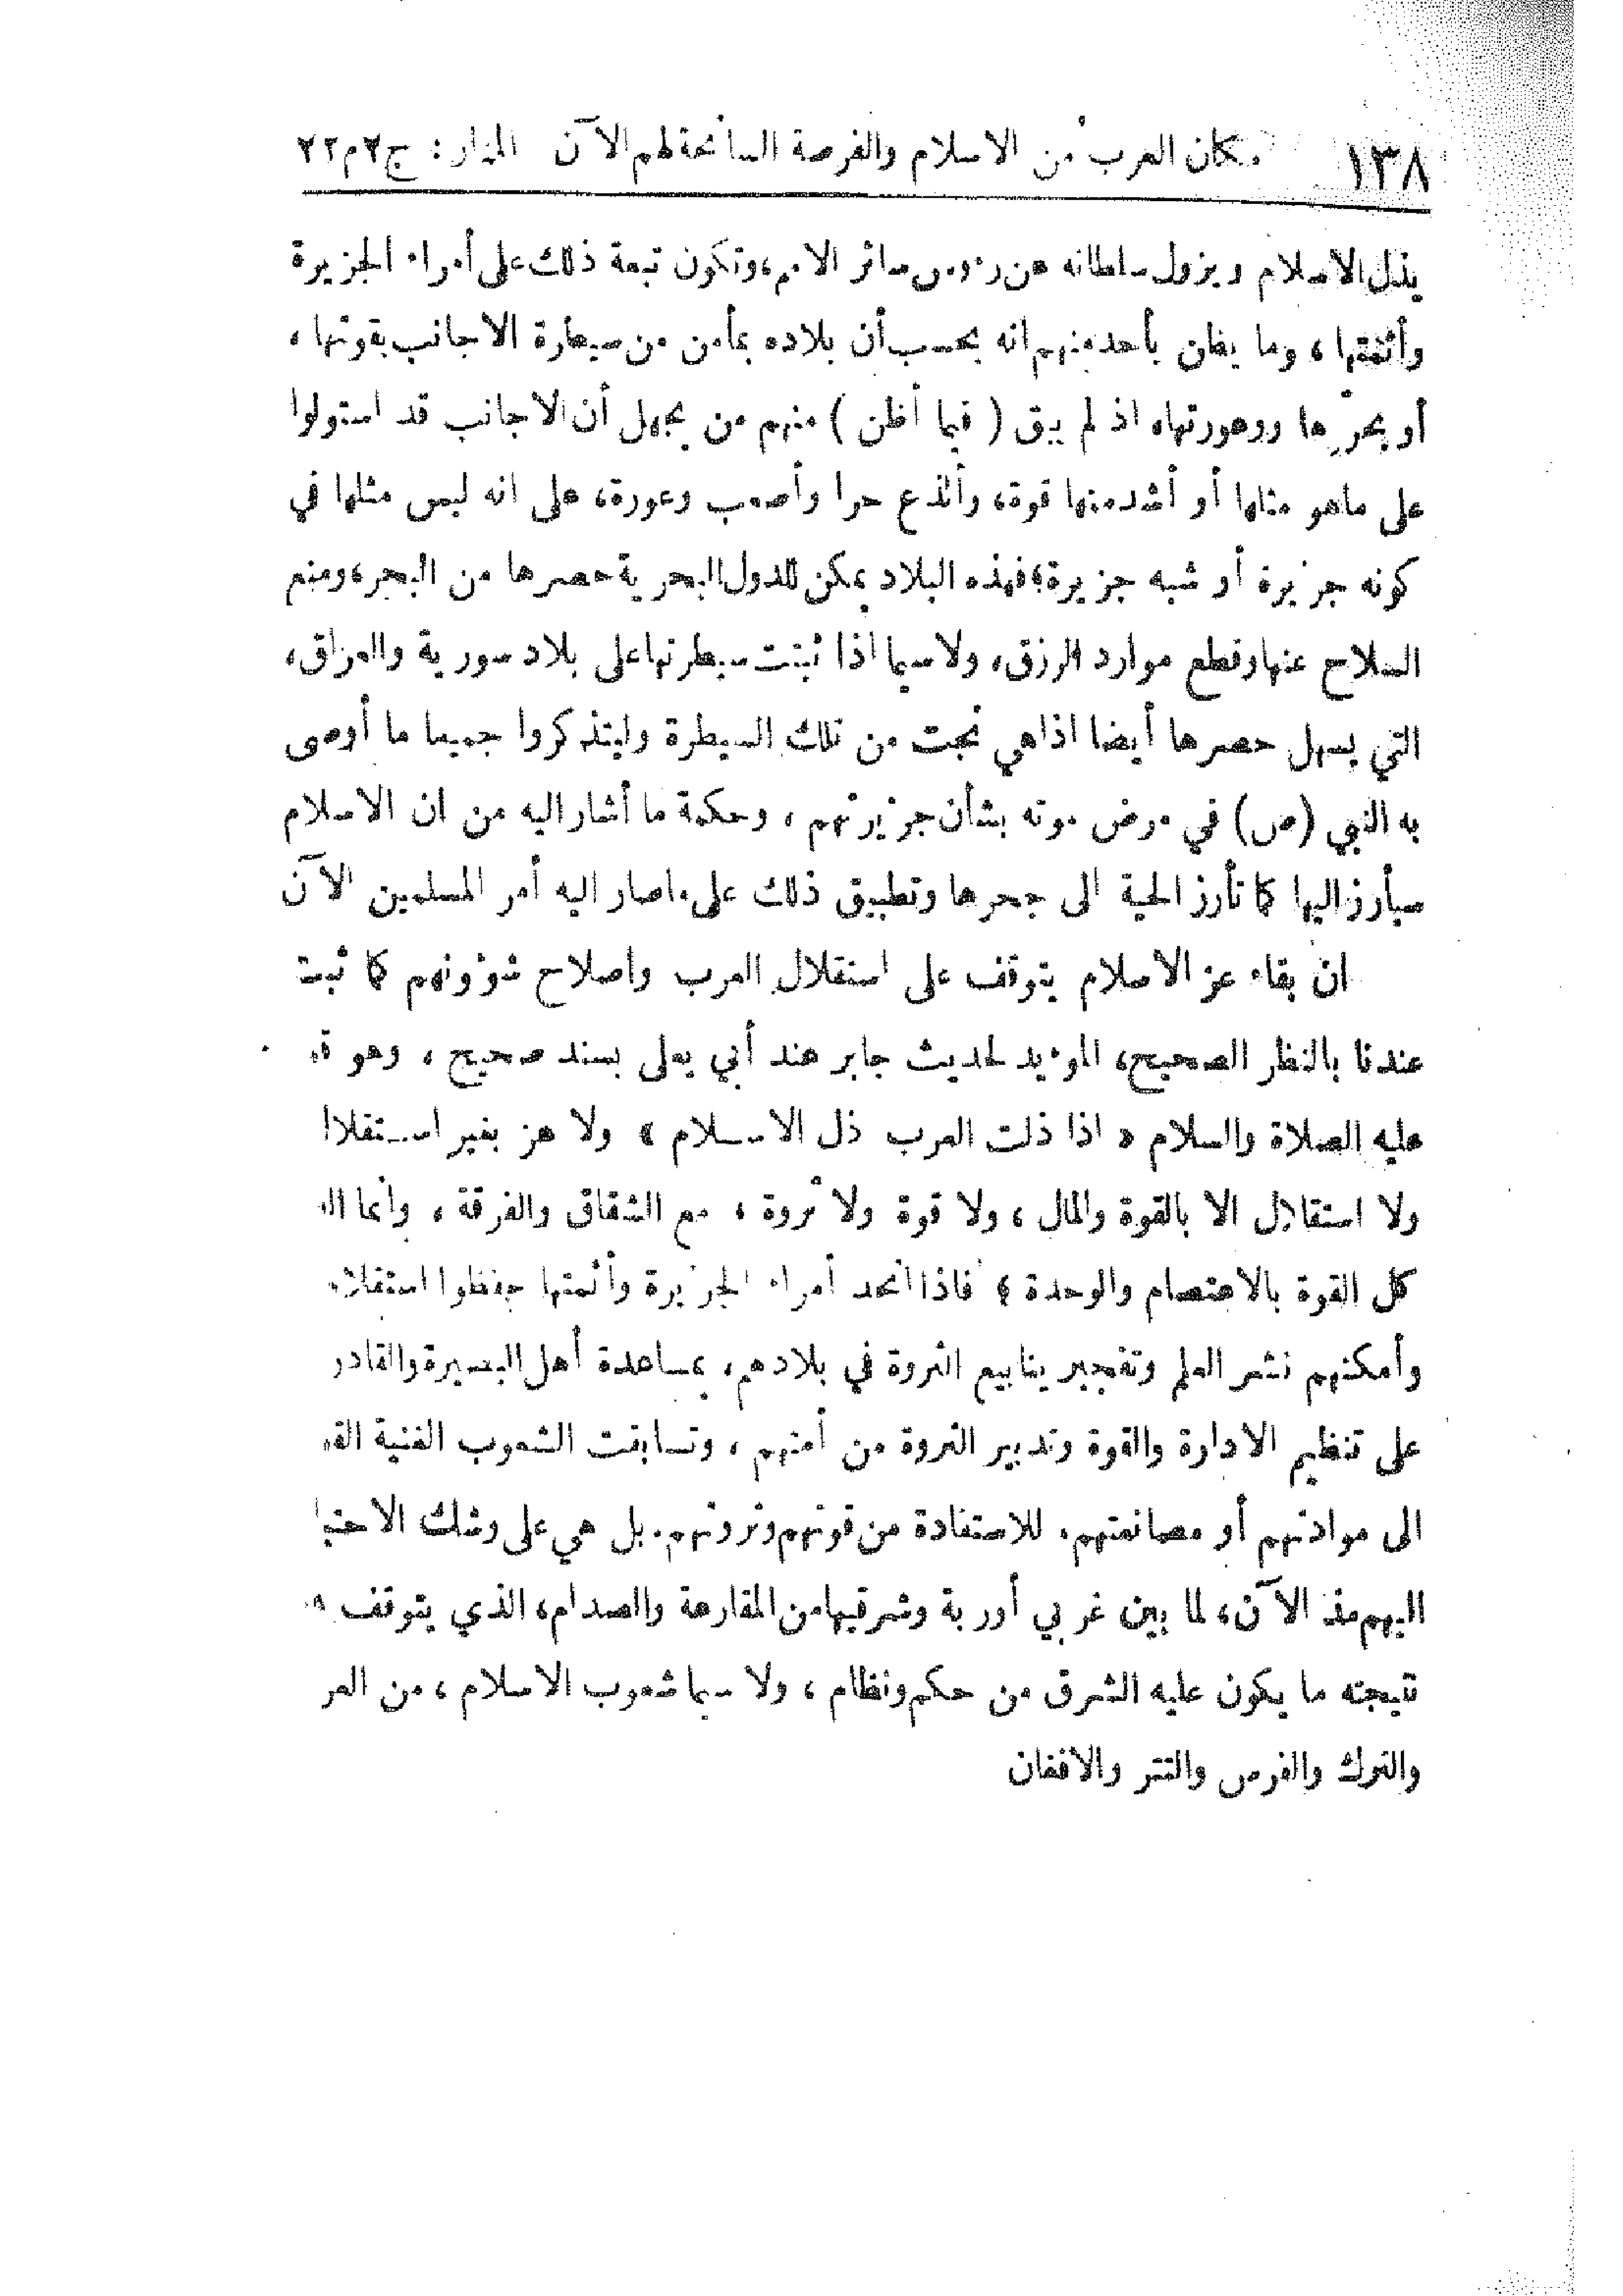 ١٣٨ مكان العرب من الاسلام والفرصة السانحة لهم الآن المنار: ج٢م٢٢
يذل الاسلام ويزول سلطانه عن رءوس سائر الامم، وتكون تبعة ذلك على أمراء الجزيرة
وأئمتها، وما يظن بأحد منهم انه يحسب أن بلاده بمأمن من سيطارة الاجانب بقوتها،
أو بحرّها ووعورتها، اذ لم يبق (فيما أظن) منهم من يجهل أن الاجانب قد استولوا
على ماهو مثلها أو أشد منها قوة، وألذع حرا وأصعب وعورة، على انه ليس مثلها في
كونه جزيرة أو شبه جزيرة؛ فهذه البلاد يمكن للدول البحرية حصرها من البحر، ومنع
السلاح عنها وقطع موارد الرزق، ولاسيما اذا ثبتت سيطرتها على بلاد سورية والعراق،
التي يسهل حصرها أيضا اذا هي نجت من تلك السيطرة وليتذكروا جميعا ما أوصى
به النبي (ص) في مرض موته بشأن جزيرتهم، وحكمة ما أشار اليه من ان الاسلام
سيأرز اليها كما تأرز الحية الى جحرها وتطبيق ذلك على ماصار اليه أمر المسلمين الآن
ان بقاء عز الاسلام يتوقف على استقلال العرب واصلاح شؤونهم كما ثبت
عندنا بالنظر الصحيح، المؤيد لحديث جابر عند أبي يعلى بسند صحيح، وهو
عليه الصلاة والسلام « اذا ذلت العرب ذل الاسلام » ولا عز بغير
ولا استقلال الا بالقوة والمال، ولا قوة ولا ثروة، مع الشقاق والفرقة، وانما
كل القوة بالاعتصام والوحدة؛ فاذا اتحد أمراء الجزيرة وأئمتها حفظوا
وأمكنهم نشر العلم وتفجير ينابيع الثروة في بلادهم، بمساعدة أهل البصيرة
على تنظيم الادارة والقوة وتدبير الثروة من أمتهم، وتسابقت الشعوب الغنية
الى موادتهم أو مصانعتهم. للاستفادة من قوتهم وثروتهم. بل هي على وشك
اليهم منذ الآن، لما بين غربي أوربة وشرقيها من المقارعة والصدام، الذي يتوقف
نتيجته ما يكون عليه الشرق من حكم ونظام، ولا سيما شعوب الاسلام، من
والترك والفرس والتتر والافغان